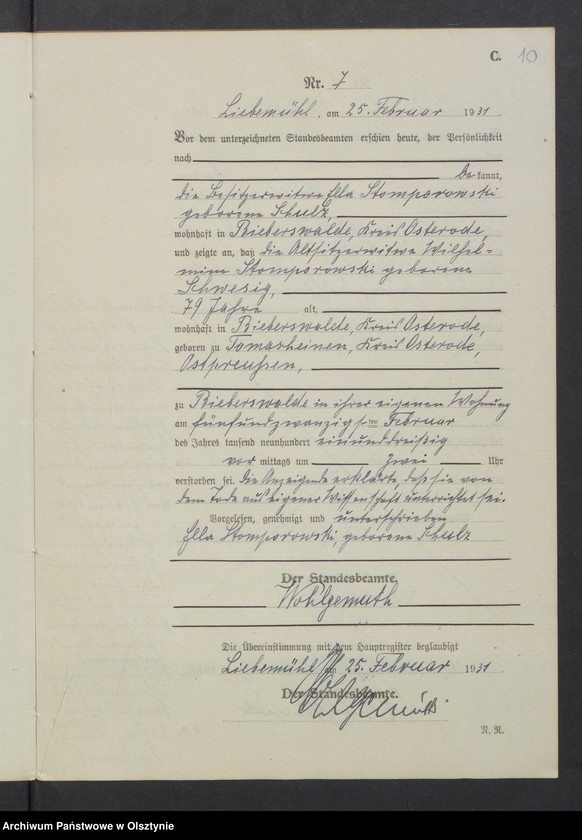 C. 10
Nr. 7
Liebemühl, am 25. Februar 1931.
Vor dem unterzeichneten Standesbeamten erschien heute, der Persönlichkeit
nach
bekannt,
die Besitzerwitwe Ella Stomporowski
geborene Schulz,
wohnhaft in Bieberswalde, Kreis Osterode,
und zeigte an, daß die Altsitzerwitwe Wilhel=
mine Stomporowski geborene
Schwesig,
79 Jahre alt,
wohnhaft in Bieberswalde, Kreis Osterode,
geboren zu Tomascheinen, Kreis Osterode,
Ostpreußen,
zu Bieberswalde in ihrer eigenen Wohnung
am fünfundzwanzigsten Februar
des Jahres tausend neunhundert einunddreißig
vor mittags um zwei Uhr
verstorben sei. Die Anzeigende erklärte, daß sie von
dem Tode aus eigener Wissenschaft unterrichtet sei.
Vorgelesen, genehmigt und unterschrieben
Ella Stomporowski, geborene Schulz
Der Standesbeamte.
Wohlgemuth
Die Übereinstimmung mit dem Hauptregister beglaubigt
Liebemühl, am 25. Februar 1931
Der Standesbeamte.
Wohlgemuth
N. R.
Archiwum Państwowe w Olsztynie